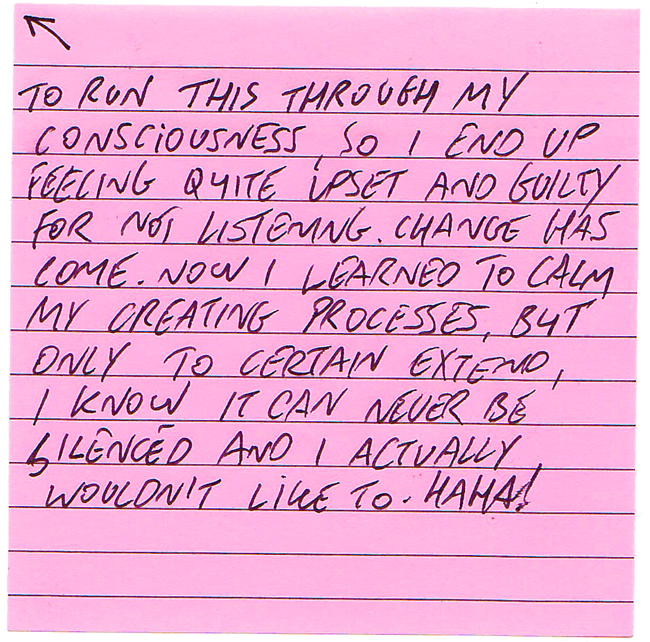 TO RUN THIS THROUGH MY
CONSCIOUSNESS, SO I END UP
FEELING QUITE UPSET AND GUILTY
FOR NOT LISTENING. CHANGE HAS
COME. NOW I LEARNED TO CALM
MY CREATING PROCESSES, BUT
ONLY TO CERTAIN EXTEND,
I KNOW IT CAN NEVER BE
SILENCED AND I ACTUALLY
WOULDN'T LIKE TO. HAHA!